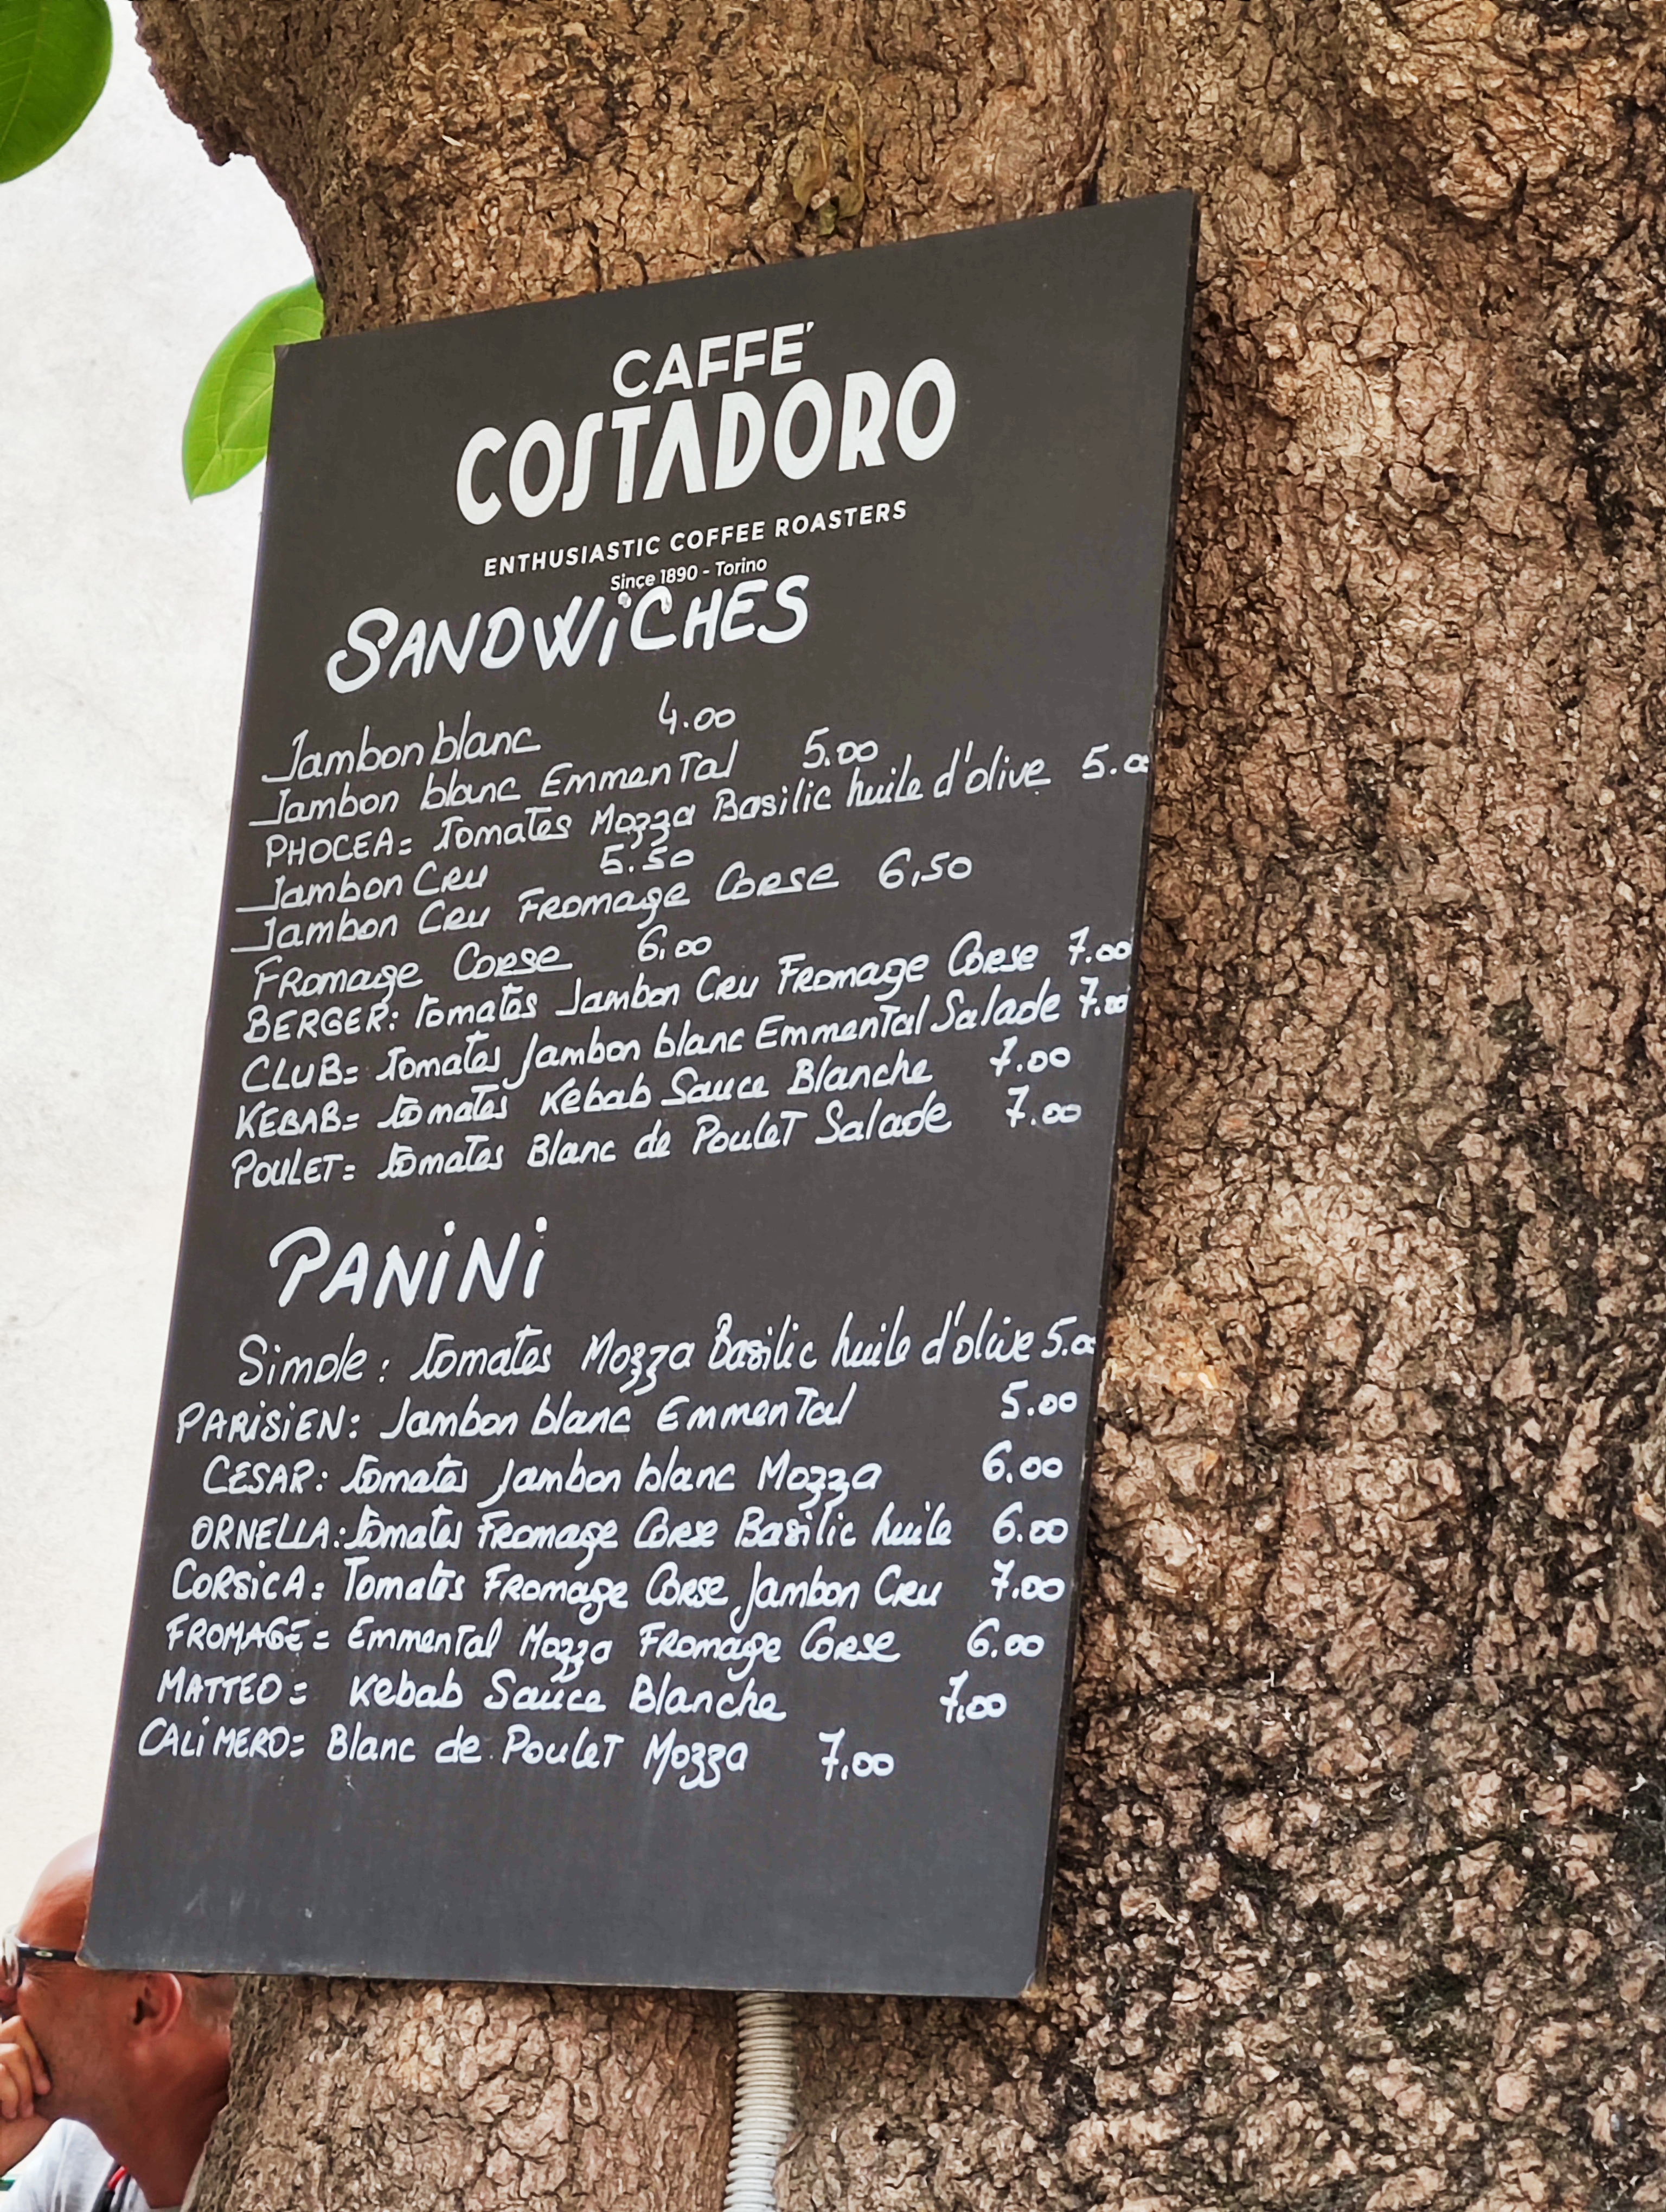 CAFFE'
COSTADORO
ENTHUSIASTIC COFFEE ROASTERS
Since 1890 - Torino
SANDWiCHES
Jambon blanc 4.00
Jambon blanc Emmental 5.00
PHOCEA= Tomates Mozza Basilic huile d'olive 5.00
Jambon Cru 5.50
Jambon Cru Fromage Corse 6,50
Fromage Corse 6,00
BERGER: tomates Jambon Cru Fromage Corse 7.00
CLUB= Tomates Jambon blanc Emmental Salade 7.00
KEBAB= tomates Kebab Sauce Blanche 7.00
POULET= tomates Blanc de Poulet Salade 7.00
PANiNi
Simple: tomates Mozza Basilic huile d'olive 5.00
PARiSiEN: Jambon blanc Emmental 5.00
CESAR: tomates Jambon blanc Mozza 6.00
ORNELLA: tomates Fromage Corse Basilic huile 6.00
CORSiCA: Tomates Fromage Corse Jambon Cru 7.00
FROMAGE= Emmental Mozza Fromage Corse 6.00
MATTEO= Kebab Sauce Blanche 7,00
CALiMERO= Blanc de Poulet Mozza 7,00